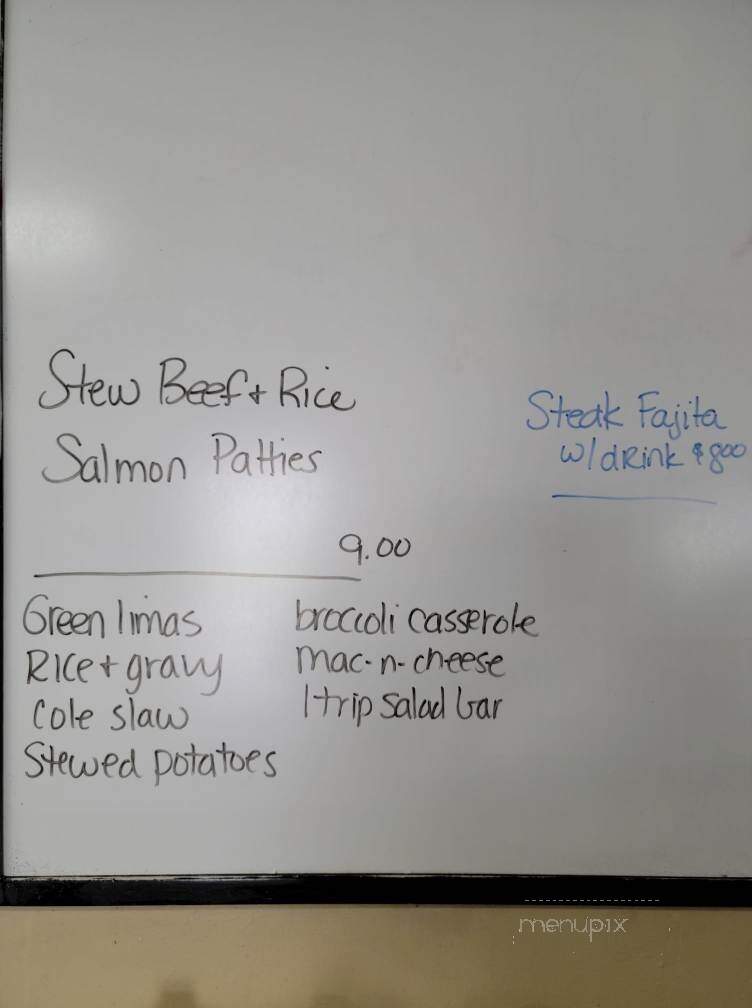 Stew Beef + Rice
Salmon Patties
9.00
Steak Fajita
w/ drink $800
Green limas
Rice + gravy
Cole slaw
Stewed potatoes
broccoli casserole
mac-n-cheese
1 trip salad bar
menupix